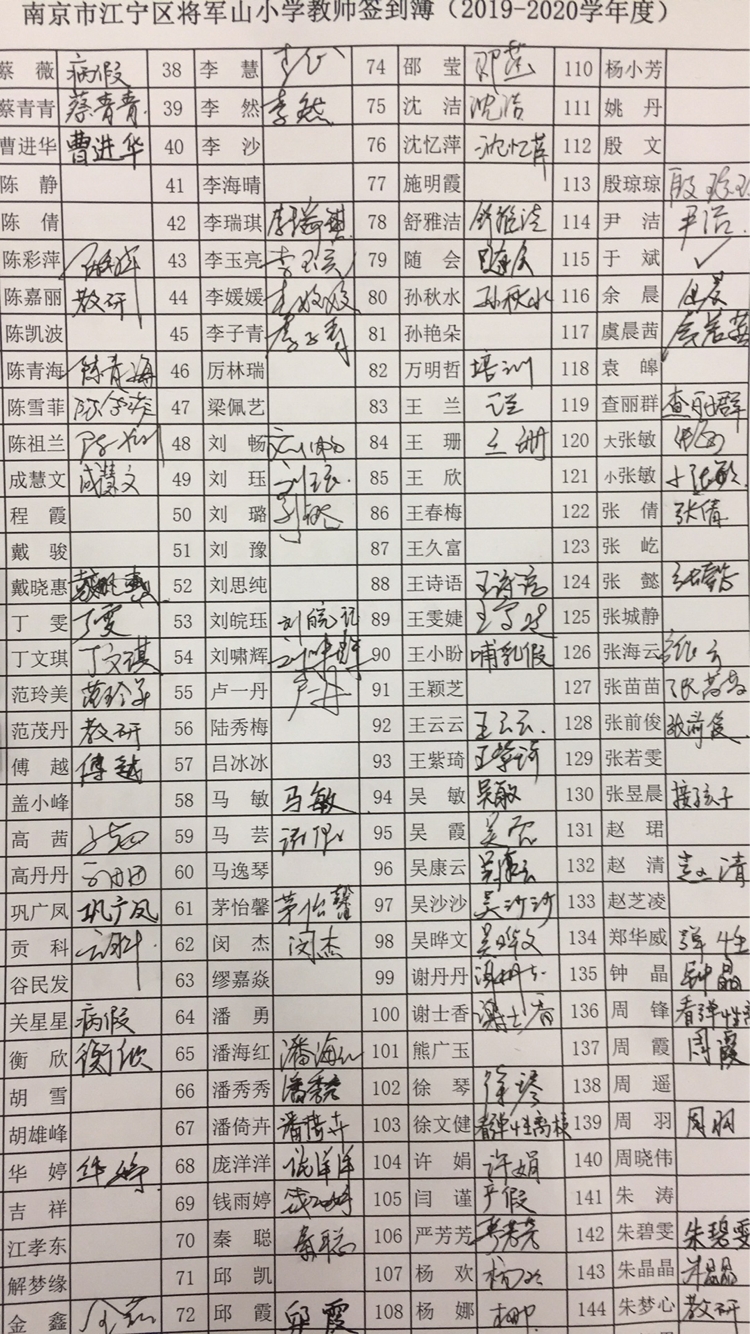 南京市江宁区将军山小学教师签到簿（2019-2020学年度）
蔡薇 病假 38 李慧 74 邵莹 邵莹 110 杨小芳
蔡青青 蔡青青 39 李然 李然 75 沈洁 沈洁 111 姚丹
曹进华 曹进华 40 李沙 76 沈忆萍 沈忆萍 112 殷文
陈静 41 李海晴 77 施明霞 113 殷琼琼 殷琼琼
陈倩 42 李瑞琪 李瑞琪 78 舒雅洁 舒雅洁 114 尹洁 尹洁
陈彩萍 43 李玉亮 李玉亮 79 随会 115 于斌 ✓
陈嘉丽 教研 44 李媛媛 李媛媛 80 孙秋水 孙秋水 116 余晨 余晨
陈凯波 45 李子青 李子青 81 孙艳朵 117 虞晨茜
陈青海 陈青海 46 厉林瑞 82 万明哲 培训 118 袁皞
陈雪菲 47 梁佩艺 83 王兰 119 查丽群 查丽群
陈祖兰 48 刘畅 84 王珊 王珊 120 大张敏
成慧文 成慧文 49 刘珏 85 王欣 121 小张敏 小张敏
程霞 50 刘璐 86 王春梅 122 张倩 张倩
戴骏 51 刘豫 87 王久富 123 张屹
戴晓惠 戴晓惠 52 刘思纯 88 王诗语 王诗语 124 张懿
丁雯 丁雯 53 刘皖珏 刘皖珏 89 王雯婕 125 张城静
丁文琪 丁文琪 54 刘啸辉 90 王小盼 哺乳假 126 张海云
范玲美 范玲美 55 卢一丹 91 王颖芝 127 张苗苗 张苗苗
范茂丹 教研 56 陆秀梅 92 王云云 王云云 128 张前俊 张前俊
傅越 傅越 57 吕冰冰 93 王紫琦 王紫琦 129 张若雯
盖小峰 58 马敏 马敏 94 吴敏 吴敏 130 张昱晨 接孩子
高茜 59 马芸 95 吴霞 吴霞 131 赵珺
高丹丹 60 马逸琴 96 吴康云 吴康云 132 赵清 赵清
巩广凤 巩广凤 61 茅怡馨 茅怡馨 97 吴沙沙 吴沙沙 133 赵芝凌
贡科 62 闵杰 闵杰 98 吴晔文 吴晔文 134 郑华威 弹性
谷民发 63 缪嘉焱 99 谢丹丹 135 钟晶 钟晶
关星星 病假 64 潘勇 100 谢士香 谢士香 136 周锋 看弹性离
衡欣 衡欣 65 潘海红 潘海红 101 熊广玉 137 周霞 周霞
胡雪 66 潘秀秀 潘秀秀 102 徐琴 徐琴 138 周遥
胡雄峰 67 潘倚卉 潘倚卉 103 徐文健 看弹性离校 139 周羽 周羽
华婷 华婷 68 庞洋洋 庞洋洋 104 许娟 许娟 140 周晓伟
吉祥 69 钱雨婷 105 闫谨 产假 141 朱涛
江孝东 70 秦聪 秦聪 106 严芳芳 严芳芳 142 朱碧雯 朱碧雯
解梦缘 71 邱凯 107 杨欢 杨欢 143 朱晶晶 朱晶晶
金鑫 72 邱霞 邱霞 108 杨娜 144 朱梦心 教研